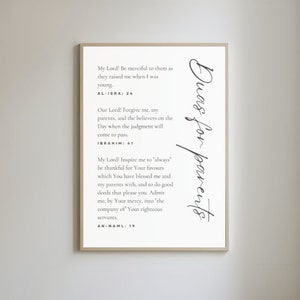 My Lord! Be merciful to them as
they raised me when I was
young.
AL-ISRA: 24
Our Lord! Forgive me, my
parents, and the believers on the
Day when the judgment will
come to pass.
IBRAHIM: 41
My Lord! Inspire me to "always"
be thankful for Your favours
which You have blessed me and
my parents with, and to do good
deeds that please you. Admit
me, by Your mercy, into "the
company of" Your righteous
servants.
AN-NAML: 19
Duas for parents